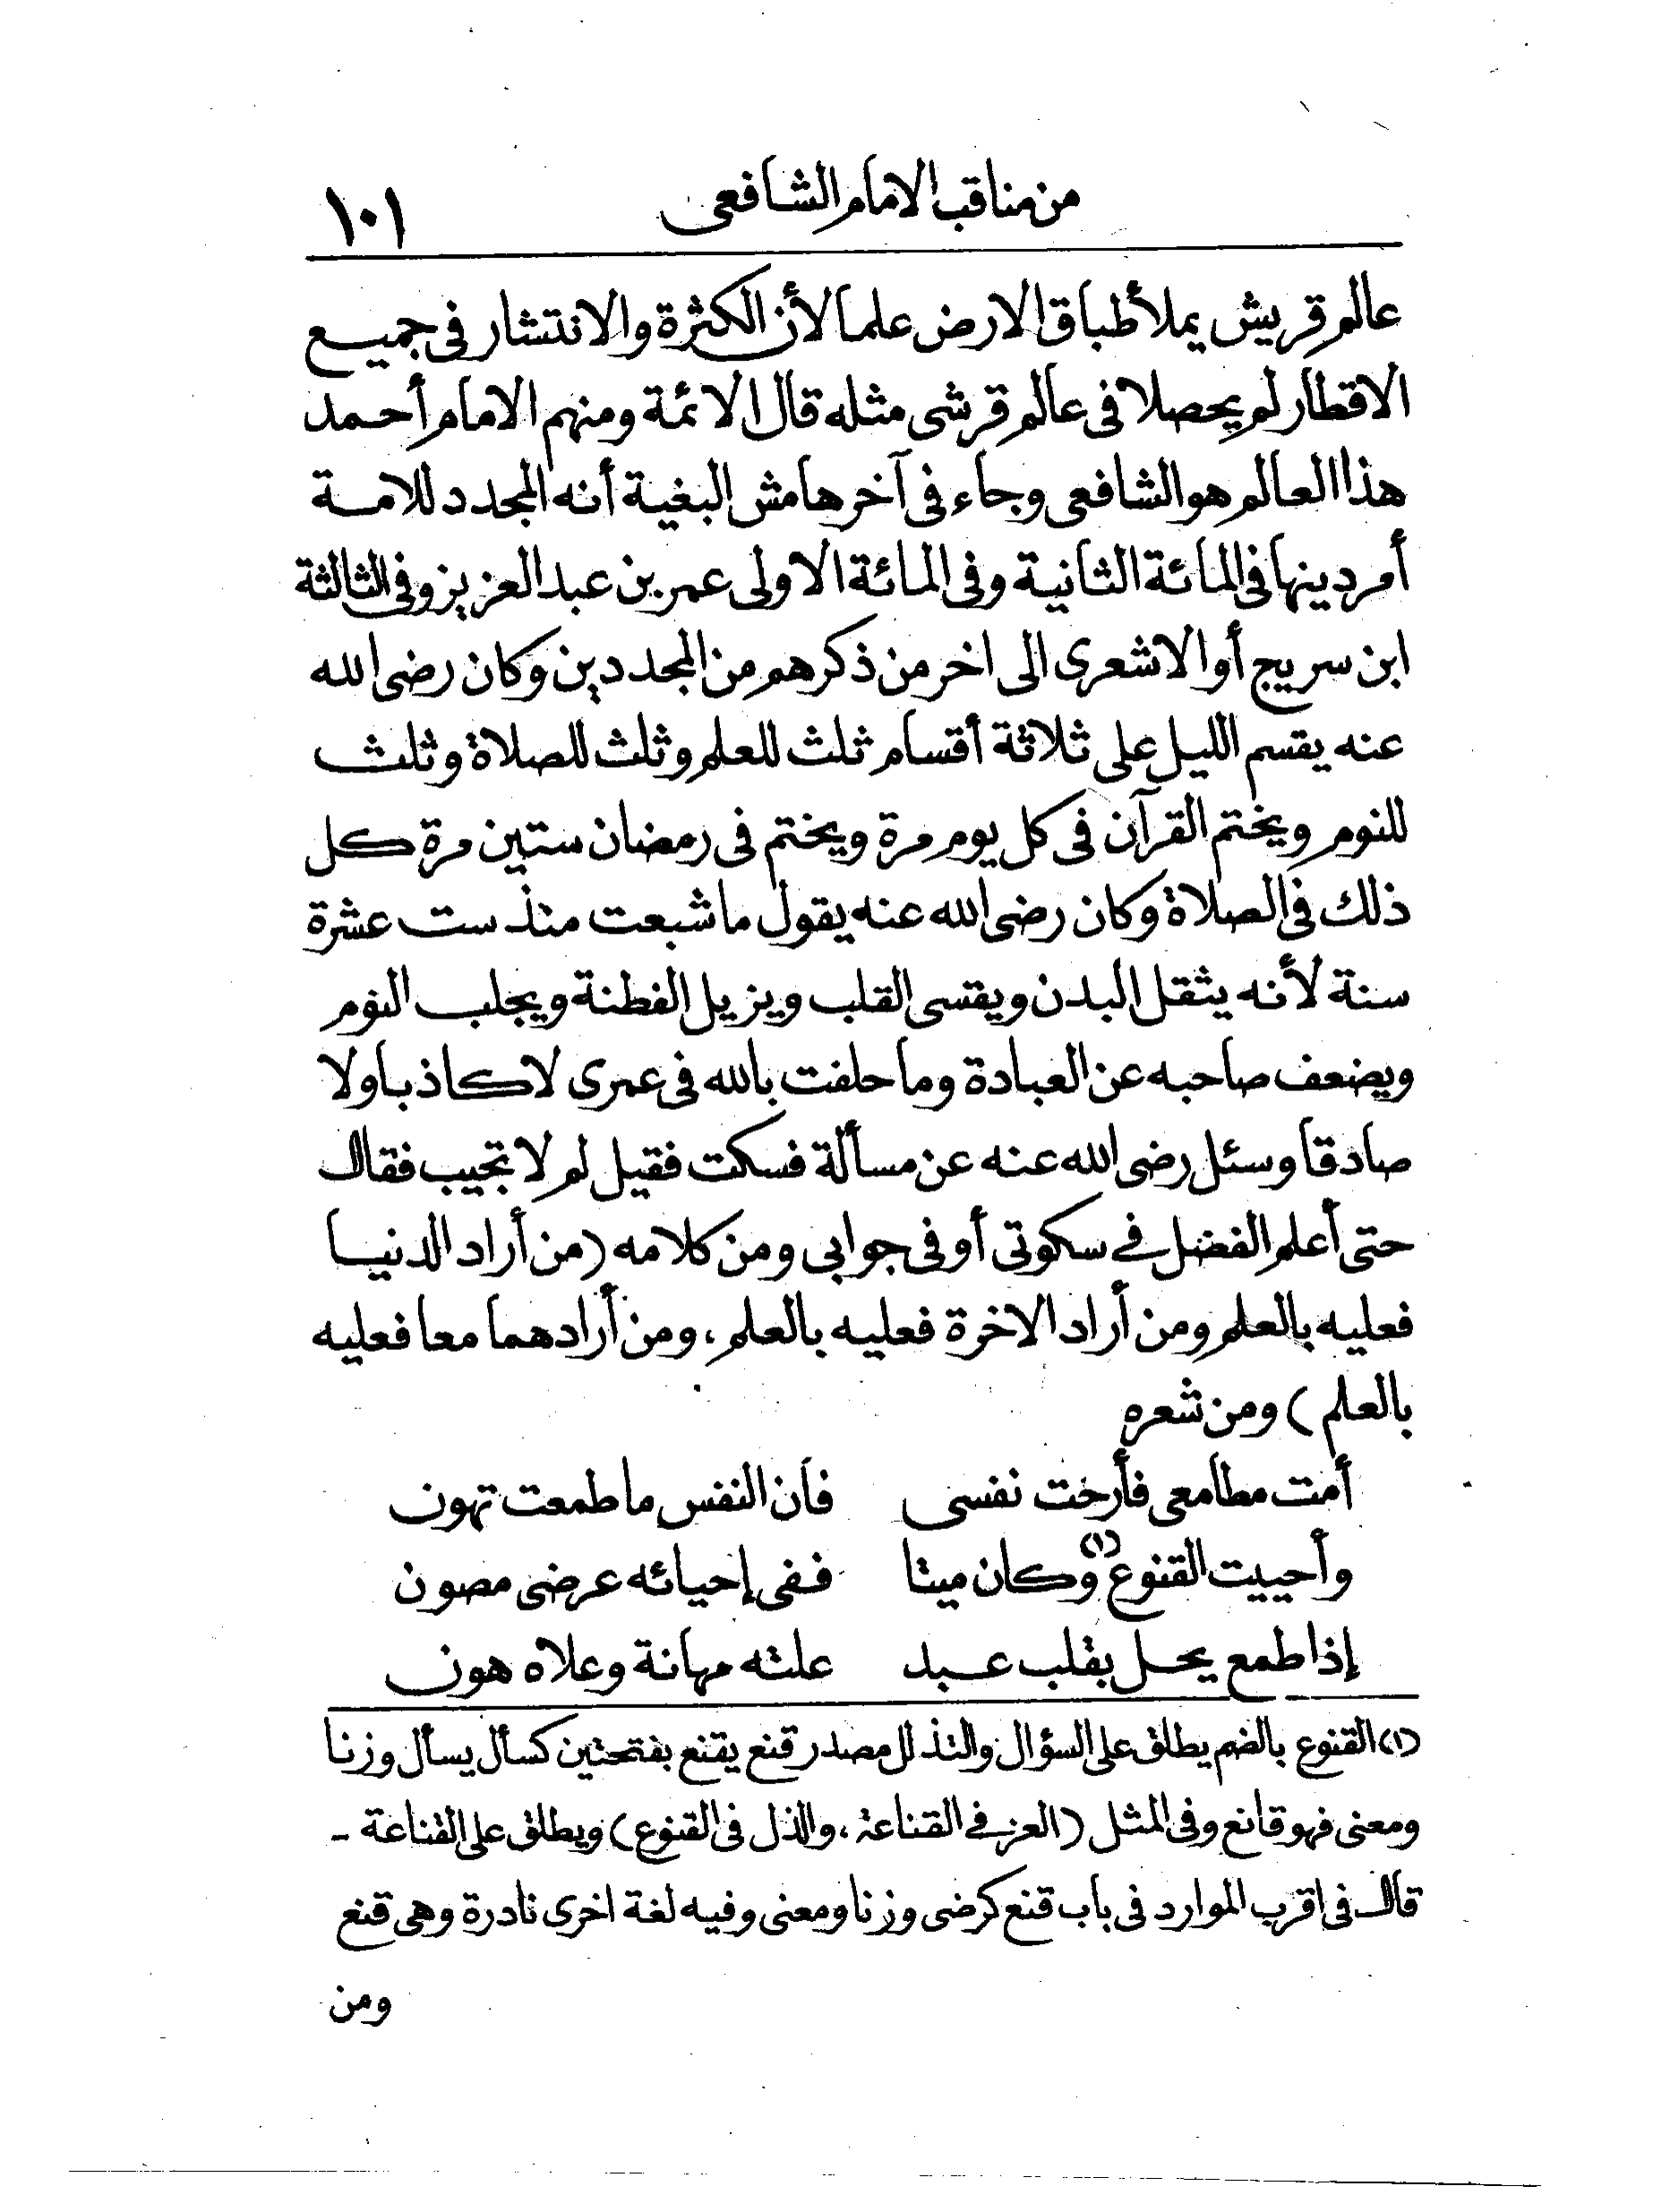 من مناقب الامام الشافعى ١٠١
عالم قريش يملأ طباق الارض علما لأن الكثرة والانتشار فى جميع
الاقطار لم يحصلا فى عالم قرشى مثله قال الائمة ومنهم الامام أحمد
هذا العالم هو الشافعى وجاء فى آخر هامش البغية أنه المجدد للامة
أمر دينها فى المائة الثانية وفى المائة الاولى عمر بن عبد العزيز وفى الثالثة
ابن سريج أو الاشعرى الى اخر من ذكرهم من المجددين وكان رضى الله
عنه يقسم الليل على ثلاثة أقسام ثلث للعلم وثلث للصلاة وثلث
للنوم ويختم القرآن فى كل يوم مرة ويختم فى رمضان ستين مرة كل
ذلك فى الصلاة وكان رضى الله عنه يقول ما شبعت منذ ست عشرة
سنة لأنه يثقل البدن ويقسى القلب ويزيل الفطنة ويجلب النوم
ويضعف صاحبه عن العبادة وما حلفت بالله فى عمرى لا كاذبا ولا
صادقا وسئل رضى الله عنه عن مسألة فسكت فقيل لم لا تجيب فقال
حتى أعلم الفضل في سكوتى أو فى جوابى ومن كلامه (من أراد الدنيا
فعليه بالعلم ومن أراد الاخرة فعليه بالعلم، ومن أرادهما معا فعليه
بالعلم) ومن شعره
أمت مطامعى فأرحت نفسى فان النفس ما طمعت تهون
وأحييت القنوع(١) وكان ميتا ففى إحيائه عرضى مصون
إذا طمع يحل بقلب عبد علته مهانة وعلاه هون
(١) القنوع بالضم يطلق على السؤال والتذلل مصدر قنع يقنع بفتحتين كسأل يسأل وزنا
ومعنى فهو قانع وفى المثل (العز في القناعة، والذل فى القنوع) ويطلق على القناعة -
قال فى اقرب الموارد فى باب قنع كرضى وزنا ومعنى وفيه لغة اخرى نادرة وهى قنع
ومن